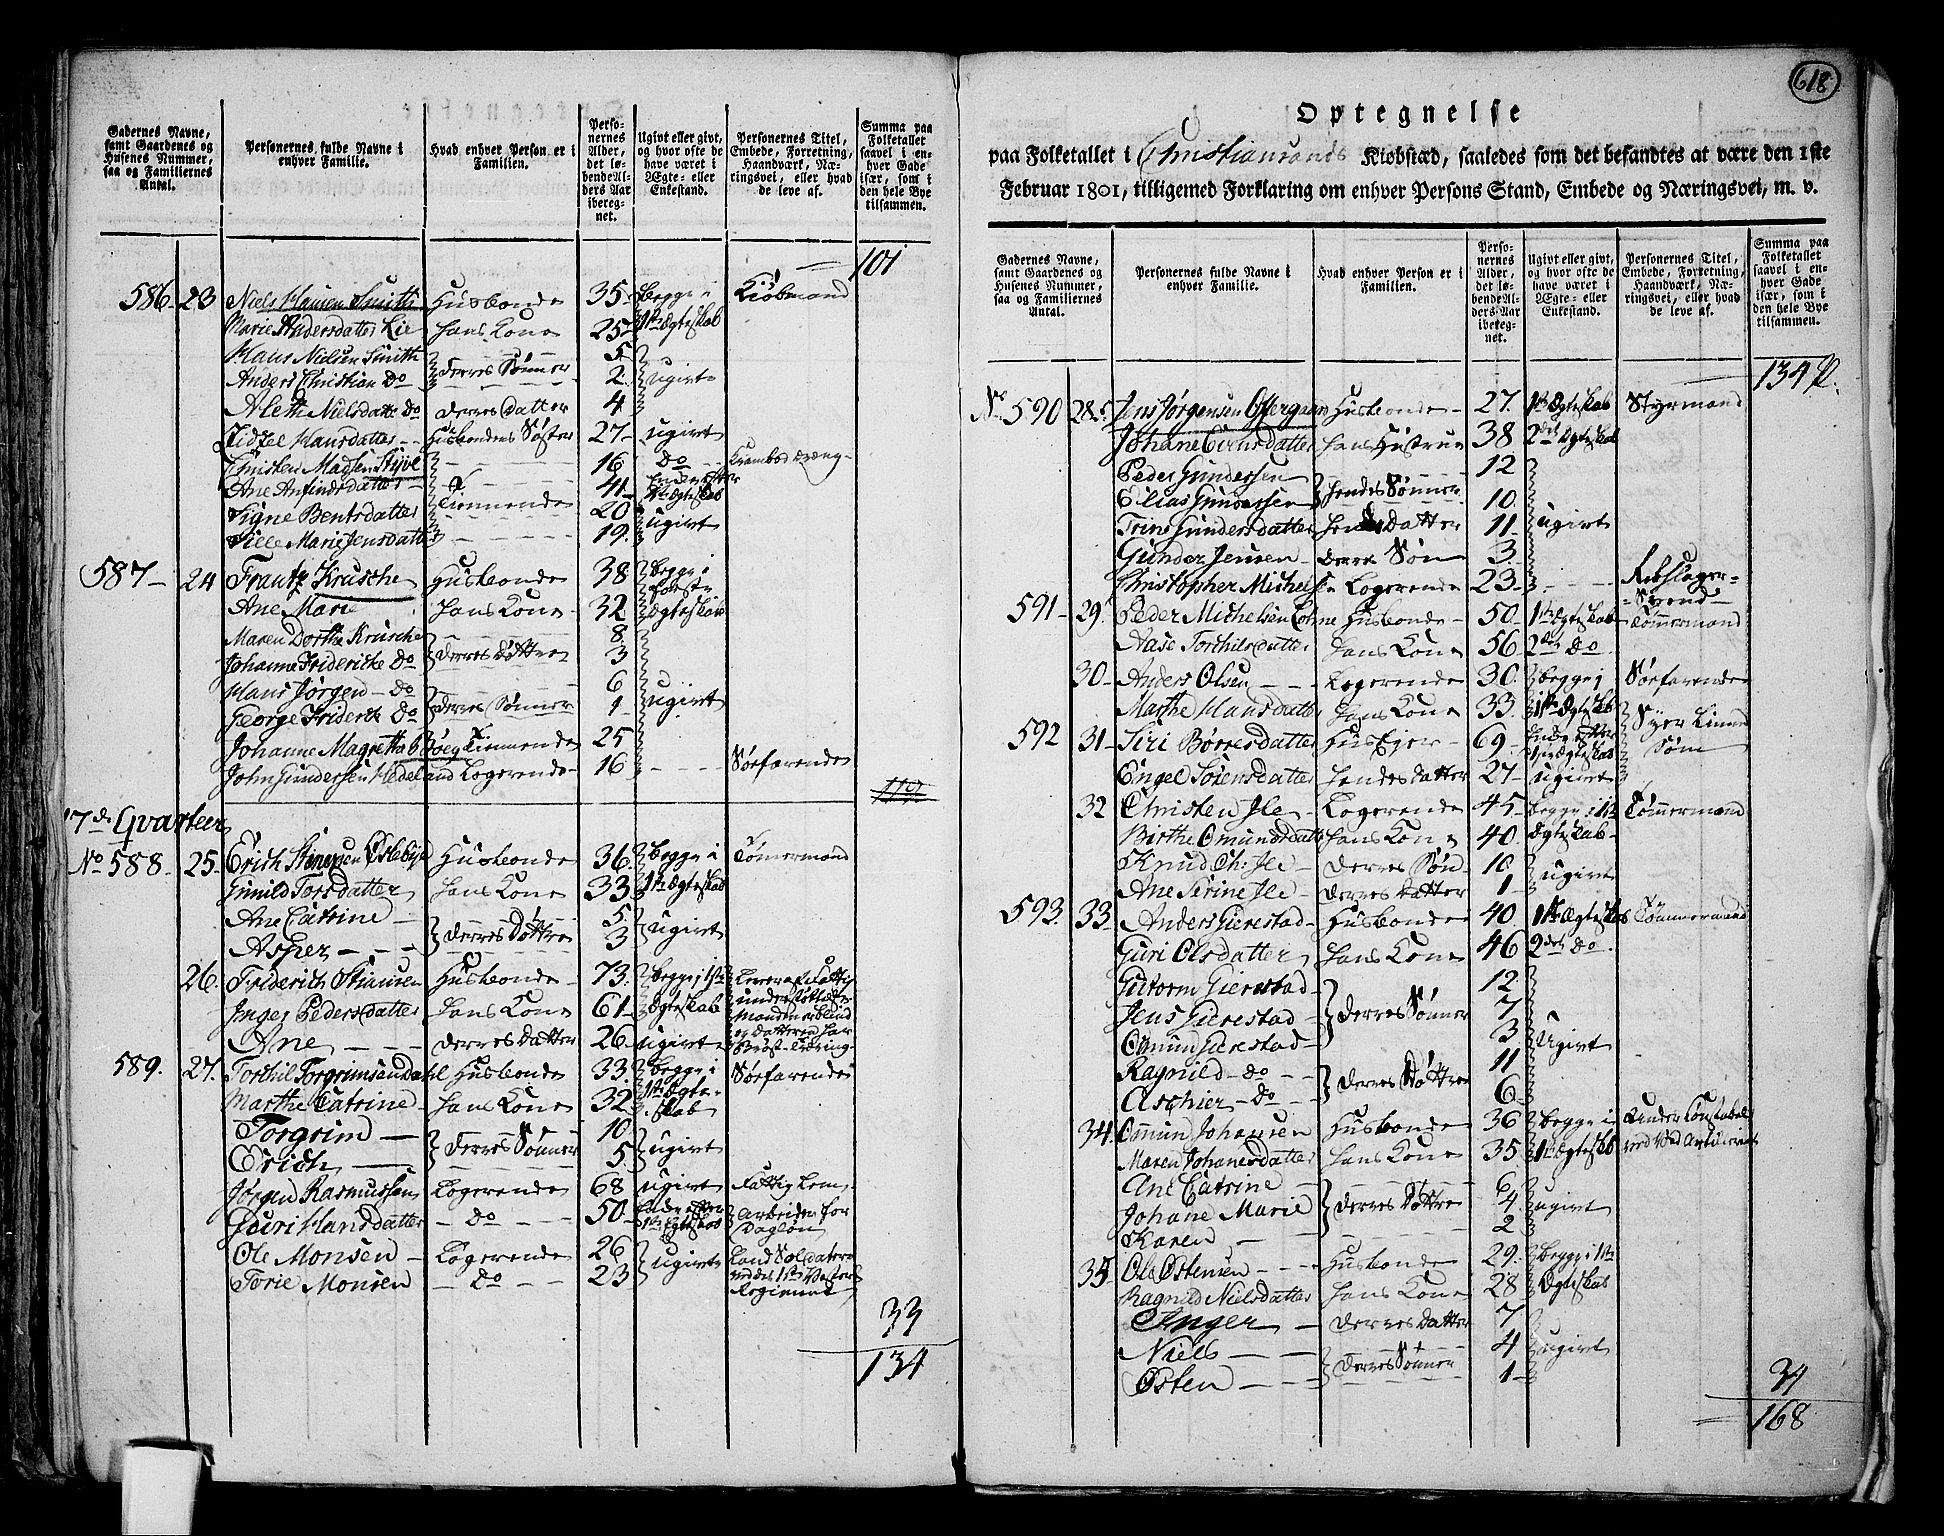 Gadernes Navne, samt Gaardenes og Husenes Nummer, saa og Familiernes Antal.
Personernes fulde Navne i enhver Familie.
Hvad enhver Person er i Familien.
Personernes Alder, det løbende Alders Aar iberegnet.
Ugivt eller givt, og hvor ofte de have været i Ægte- eller Enkestand.
Personernes Titel, Embede, Forretning, Haandværk, Næringsvei, eller hvad de leve af.
Summa paa Folketallet saavel i enhver Gade især, som i den hele Bye tilsammen.
101
586. 23 Niels Hansen Smith Husbonde 35 begge i Kiøbmand
Marie Andersdatter Lie hans Kone 25 1ste Ægteskab
Hans Nielsen Smith 5
Anders Christian Do deres Sønner 2 ugivt
Aleth Nielsdatter Do deres datter 4
Zidsel Hansdatter Husbondens Søster 27 ugivt
Christen Madsen Stÿve 16 Do Krambod dreng
Ane Anfindsdatter 41 Enke efter 1ste Ægteskab
Signe Bentsdatter Tienende 20 ugivt
Sille Marie Jensdatter 19
587 24 Frantz Krusche Husbonde 38 begge i første
Ane Marie hans Kone 32 Ægteskab
Maren Dorthe Krusche 8
Johanne Frideriche Do deres Døttre 3
Hans Jørgen Do 6 ugivt
George Friderik Do deres Sønner 1
Johanne Magretha Bøeg Tienende 25
John Gundersen Hedeland Logerende 16 Søefarende
17de Qvarteer
No 588 25 Erich Husbonde 36 begge i Tømmermand
Gunild Torsdatter hans Kone 33 1ste Ægteskab
Ane Catrine 5
Asper deres Døttre 3 ugivt
26. Friderich Husbonde 73 begge i 1ste Lever af Fattig
Inger Pedersdatter hans Kone 61 Ægteskab understøttelse Manden er blind
Ane deres datter 26 ugivt og Datteren har Brøst-Tæring
589. 27. Torkil Torgrimsen Dahl Husbonde 33 begge i Søefarende
Marthe Catrine hans Kone 32 1ste Ægteskab
Torgrim 10
Erich deres Sønner 5 ugivt
Jørgen Rasmussen Logerende 68 ugivt Fattig Lem
Gouri Hansdatter Do 50 Enke efter 1ste Ægteskab arbeider for Dagløn
Ole Monsen Logerende 26 Land Soldater
Torie Monsen Do 23 ugivt ved det 1ste
33
134
618
Optegnelse
paa Folketallet i Christiansands Kiøbstæd, saaledes som det befandtes at være den 1ste
Februar 1801, tilligemed Forklaring om enhver Persons Stand, Embede og Næringsvei, m. v.
Gadernes Navne, samt Gaardenes og Husenes Nummer, saa og Familiernes Antal.
Personernes fulde Navne i enhver Familie.
Hvad enhver Person er i Familien.
Personernes Alder, det løbende Alders Aar iberegnet.
Ugivt eller givt, og hvor ofte de have været i Ægte- eller Enkestand.
Personernes Titel, Embede, Forretning, Haandværk, Næringsvei, eller hvad de leve af.
Summa paa Folketallet saavel i enhver Gade især, som i den hele Bye tilsammen.
134
No 590 28 Jens Jørgensen Husbonde 27. 1ste Ægteskab Styrmand
Johane hans Hustrue 38 2det Ægteskab
Peder Gundersen 12
Elias Gundersen hendes Sønner 10
Trine Gundersdatter hendes Datter 11 ugivt
Gunder Jensen deres Søn 3
Christopher Michelsen Logerende 23 Rebslager-Svend
591 29. Peder Michelsen Husbonde 50 1ste Ægteskab Tømmermand
Aase Torkilsdatter hans Kone 56 2det Do
30 Anders Olsen Logerende 30 begge i Søefarende
Marthe Hansdatter hans Kone 33 1ste Ægteskab
592 31 Siri Børresdatter Huseyer 69 Enke efter 1ste Ægteskab Syer Linned Søm
Engel Sørensdatter hendes datter 27 ugivt
32 Christen Ile Logerende 45 begge i 1ste Tømmermand
Birthe Omundsdatter hans Kone 40 Ægteskab
Knud Ch: Ile deres Søn 10
Ane Sirine Ile deres datter 1 ugivt
593. 33 Anders Gierestad Husbonde 40 1ste Ægteskab Tømmermand
Guri Olsdatter hans Kone 46 2det Do.
Gutorm Gierestad 12
Jens Gierestad deres Sønner 7
Omund Gierestad 3 Ugivt
Ragnild Do 11
Aschier Do deres Døttre 6
34. Omund Johansen Husbonde 36 begge i Under Constabel
Maren Johanesdatter hans Kone 35 1ste Ægteskab
Ane Catrine 6
Johane Marie deres Døttre 4 ugivt
Karen 2
35 Ole Østensen Husbonde 29. begge i 1ste
Ragnild Nielsdatter hans Kone 28 Ægteskab
Inger deres datter 7
Niels 4 ugivt
Østen deres Sønner 1
34
168